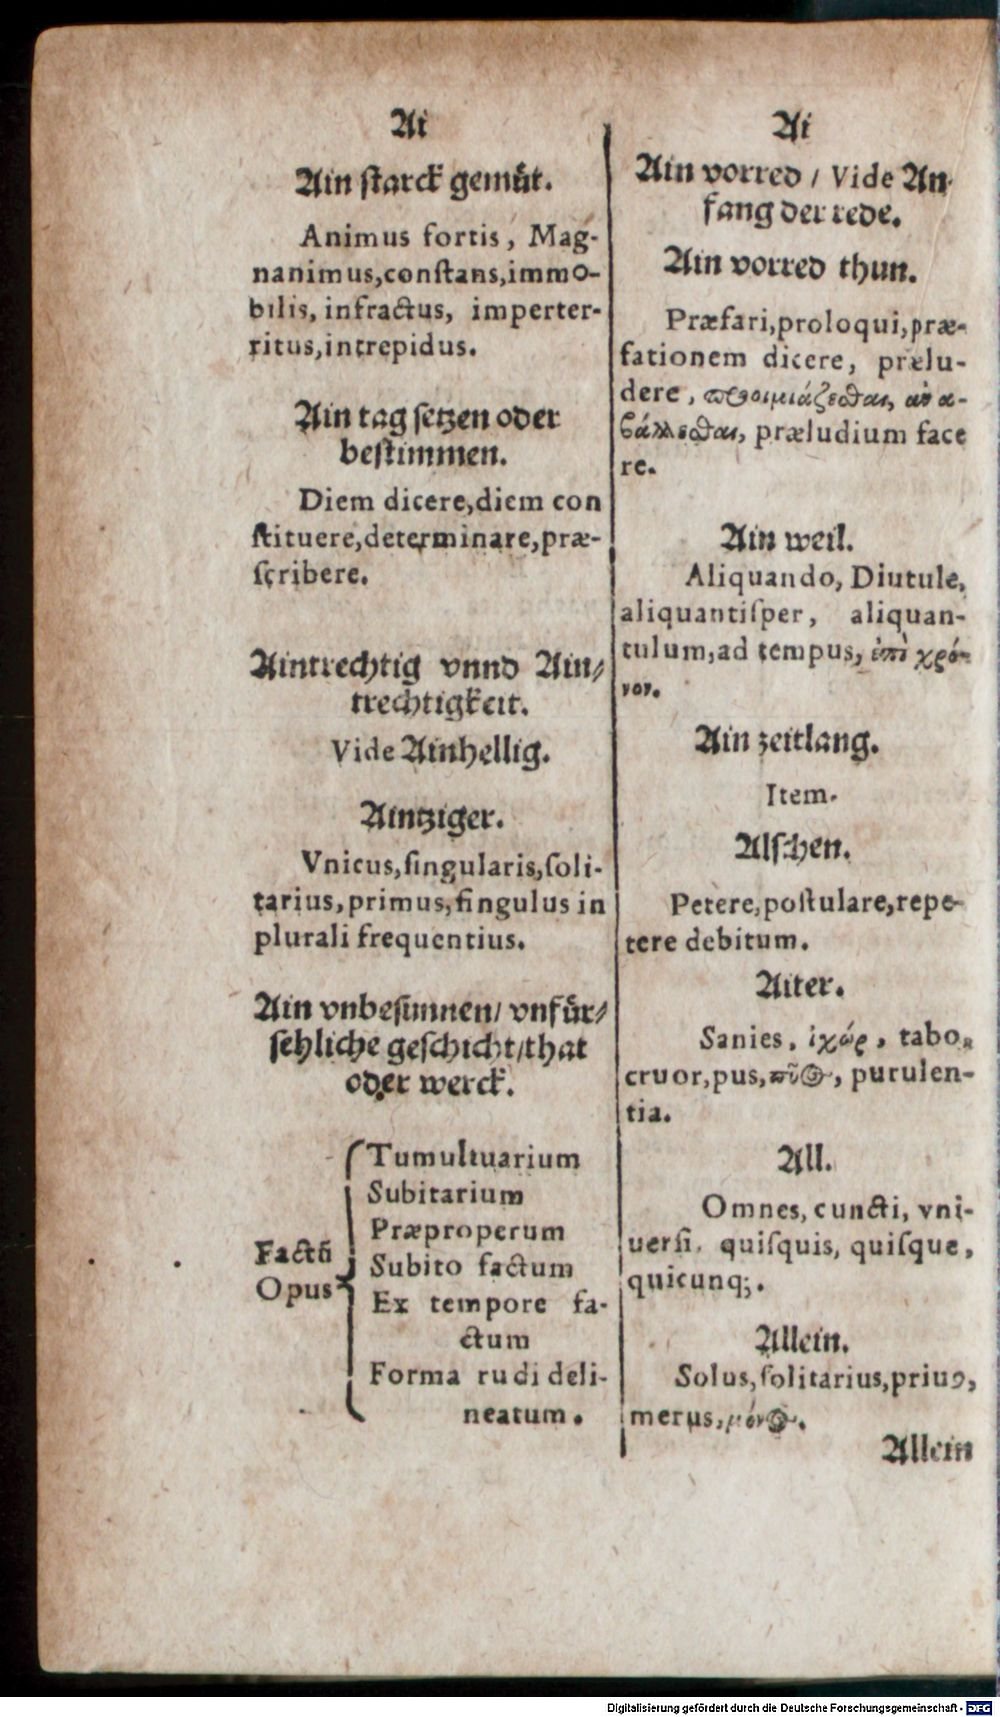 Ai
Ain starck gemuͤt.
Animus fortis, Mag-
nanimus,constans,immo-
bilis, infractus, imperter-
ritus,intrepidus.
Ain tag setzen oder
bestimmen.
Diem dicere,diem con
stituere,determinare,præ-
scribere.
Aintrechtig vnnd Ain/
trechtigkeit.
Vide Ainhellig.
Aintziger.
Vnicus,singularis,soli-
tarius,primus,singulus in
plurali frequentius.
Ain vnbesinnen/ vnfuͤr/
sehliche geschicht/that
oder werck.
Factū
Opus
Tumultuarium
Subitarium
Præproperum
Subito factum
Ex tempore fa-
ctum
Forma rudi deli-
neatum.
Ai
Ain vorred / Vide An-
fang der rede.
Ain vorred thun.
Præfari,proloqui,præ-
fationem dicere, prælu-
dere, προοιμιάζεσθαι, ἀνα-
βάλλεσθαι, præludium face
re.
Ain weil.
Aliquando, Diutule,
aliquantisper, aliquan-
tulum,ad tempus, ἐπὶ χρό-
νον.
Ain zeitlang.
Item.
Aischen.
Petere,postulare,repe-
tere debitum.
Aiter.
Sanies, ἰχώρ, tabo,
cruor,pus,πῦος, purulen-
tia.
All.
Omnes, cuncti, vni-
uersi, quisquis, quisque,
quicunq;.
Allein.
Solus,solitarius,priuꝰ,
merus,μόνος.
Allein
Digitalisierung gefördert durch die Deutsche Forschungsgemeinschaft - DFG